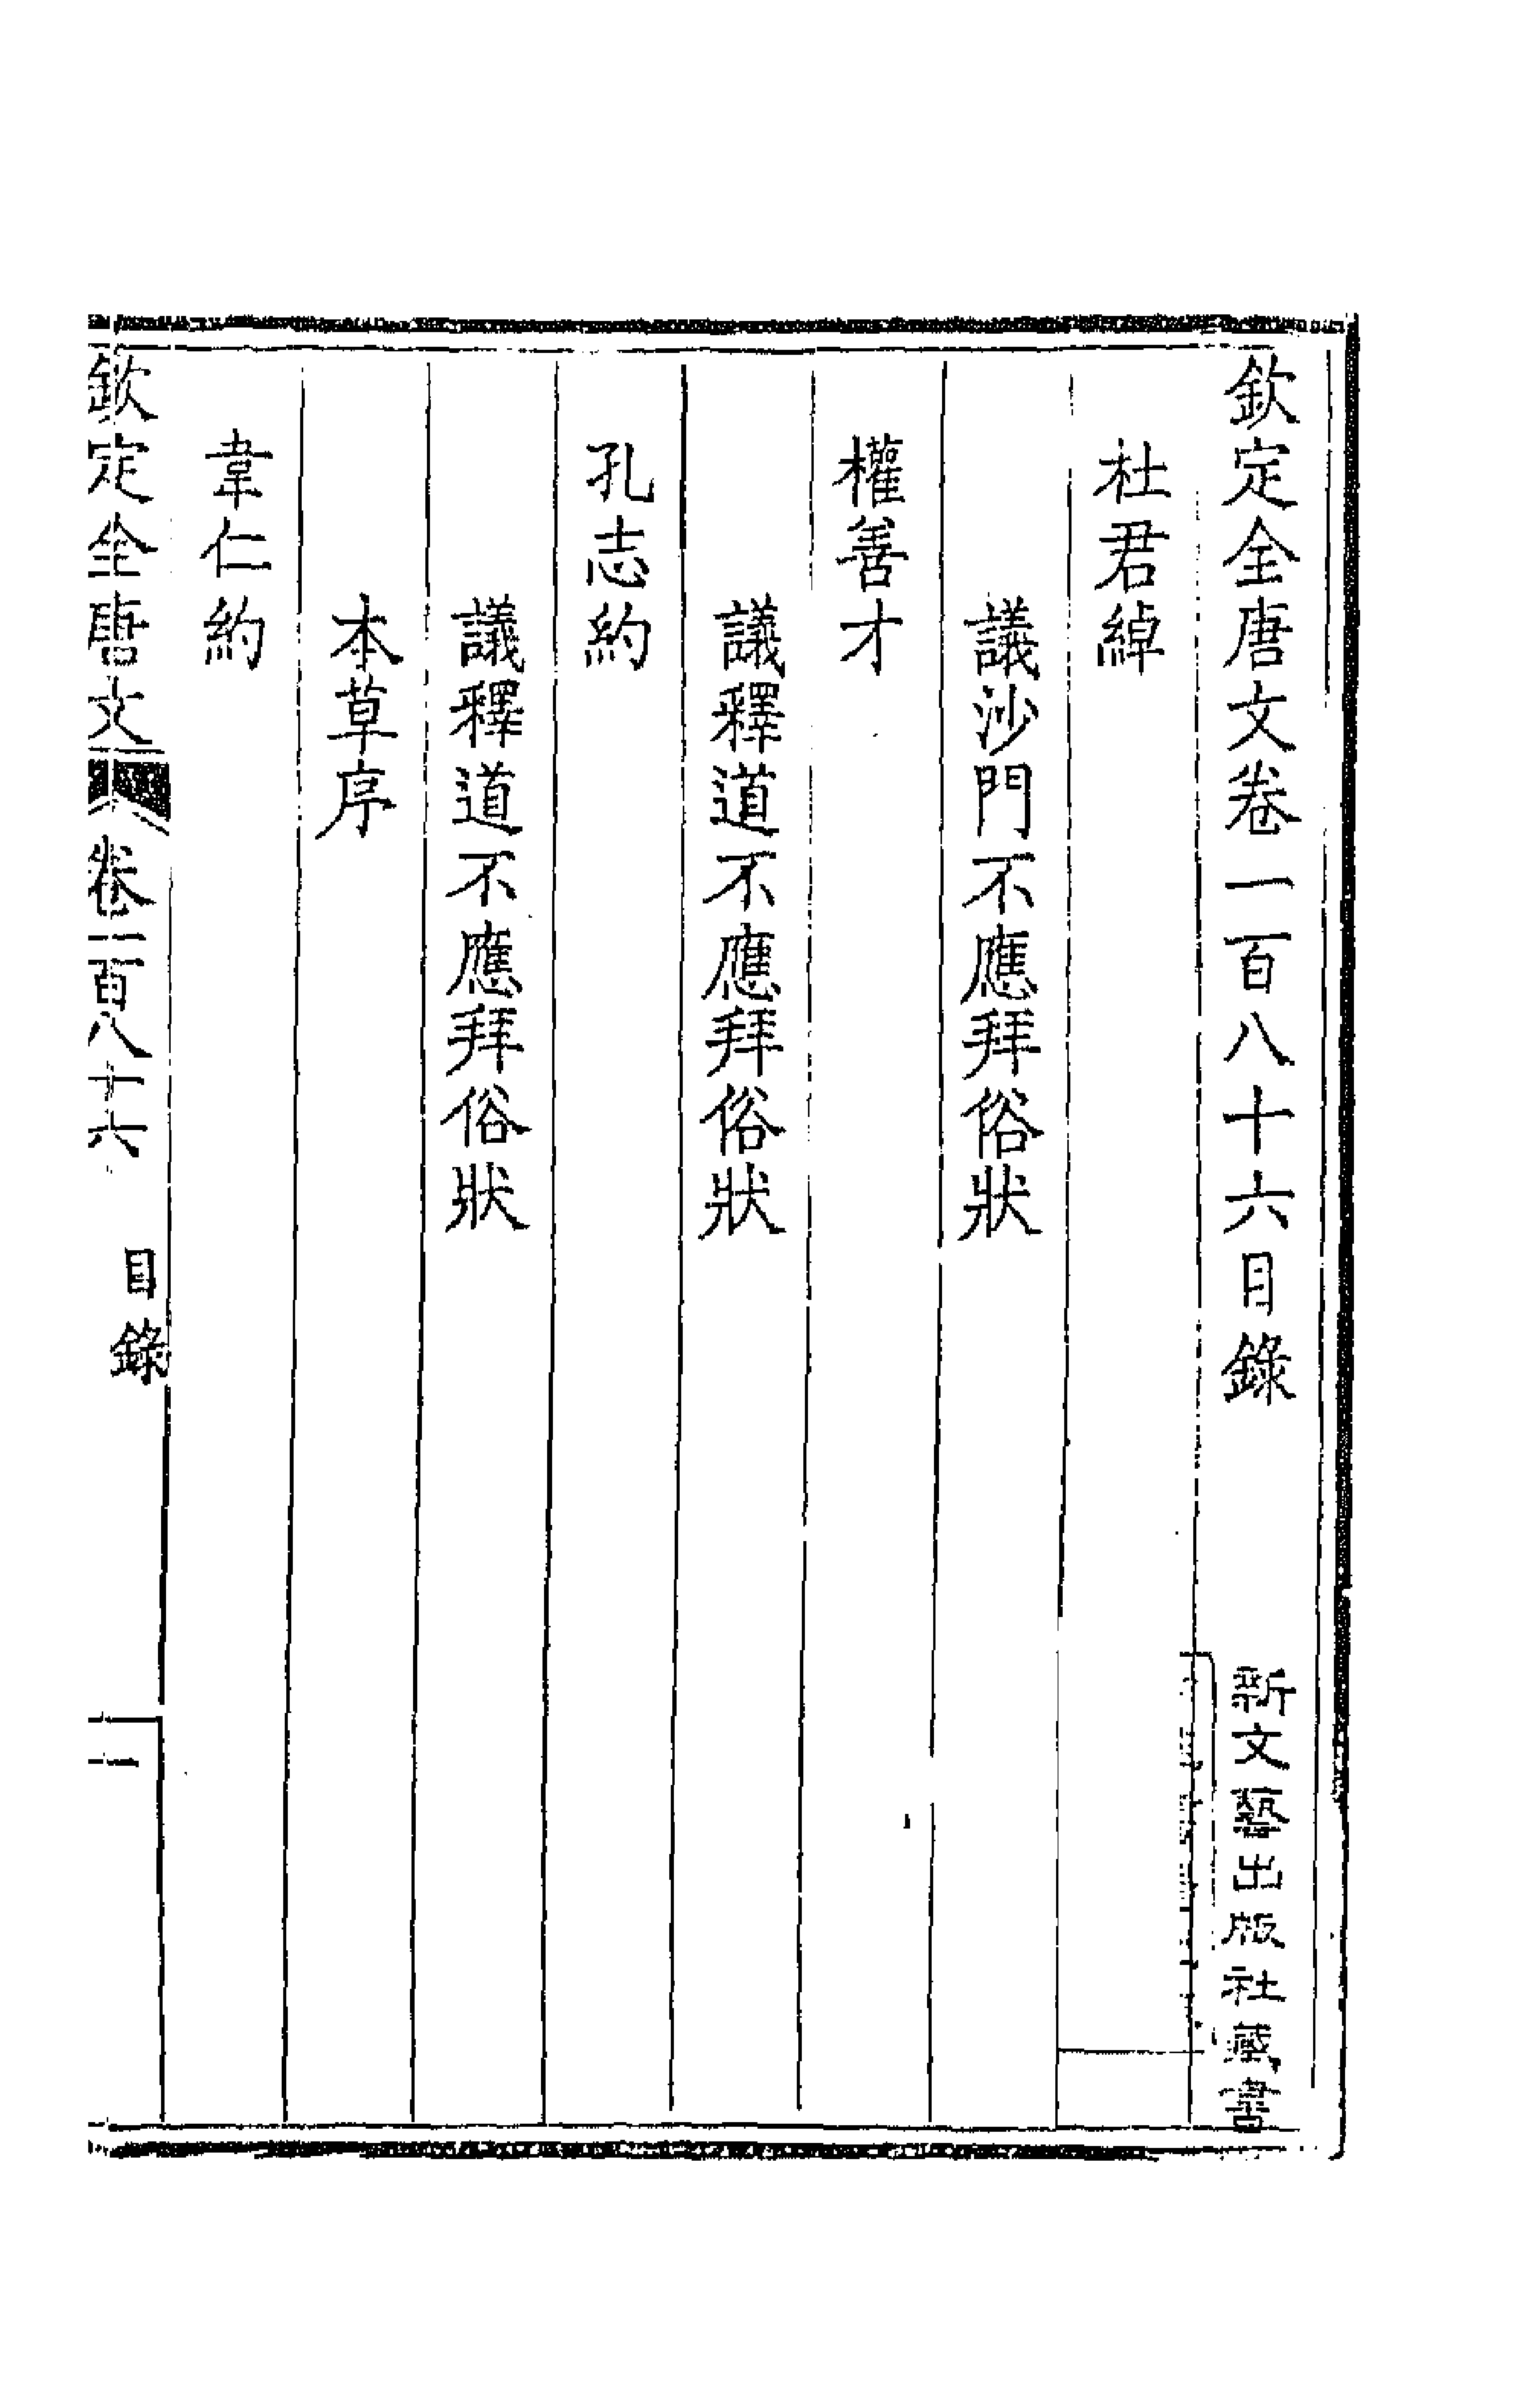 欽定全唐文卷一百八十六目錄
新文藝出版社藏書
杜君綽
議沙門不應拜俗狀
權善才
議釋道不應拜俗狀
孔志約
議釋道不應拜俗狀
本草序
韋仁約
欽定全唐文 卷一百八十六 目錄 一